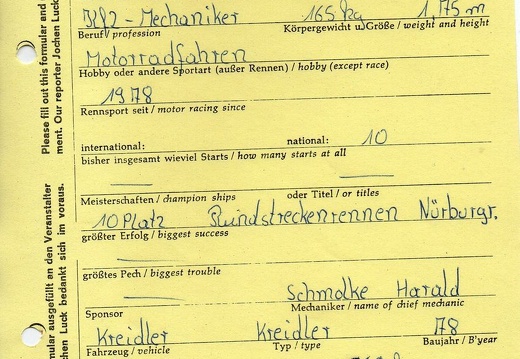 Kfz-Mechaniker 165 kg 1,75 m
Beruf / profession Körpergewicht u. Größe / weight and height
Motorradfahren
Hobby oder andere Sportart (außer Rennen) / hobby (except race)
1978
Rennsport seit / motor racing since
international: national: 10
bisher insgesamt wieviel Starts / how many starts at all
Meisterschaften / champion ships oder Titel / or titles
10 Platz Rundstreckenrennen Nürburgr.
größter Erfolg / biggest success
größtes Pech / biggest trouble
Schmolke Harald
Sponsor Mechaniker / name of chief mechanic
Kreidler Kreidler 78
Fahrzeug / vehicle Typ / type Baujahr / B'year
Please fill out this formular and
ment. Our reporter Jochen Luck
mular ausgefüllt an den Veranstalter
chen Luck bedankt sich im voraus.